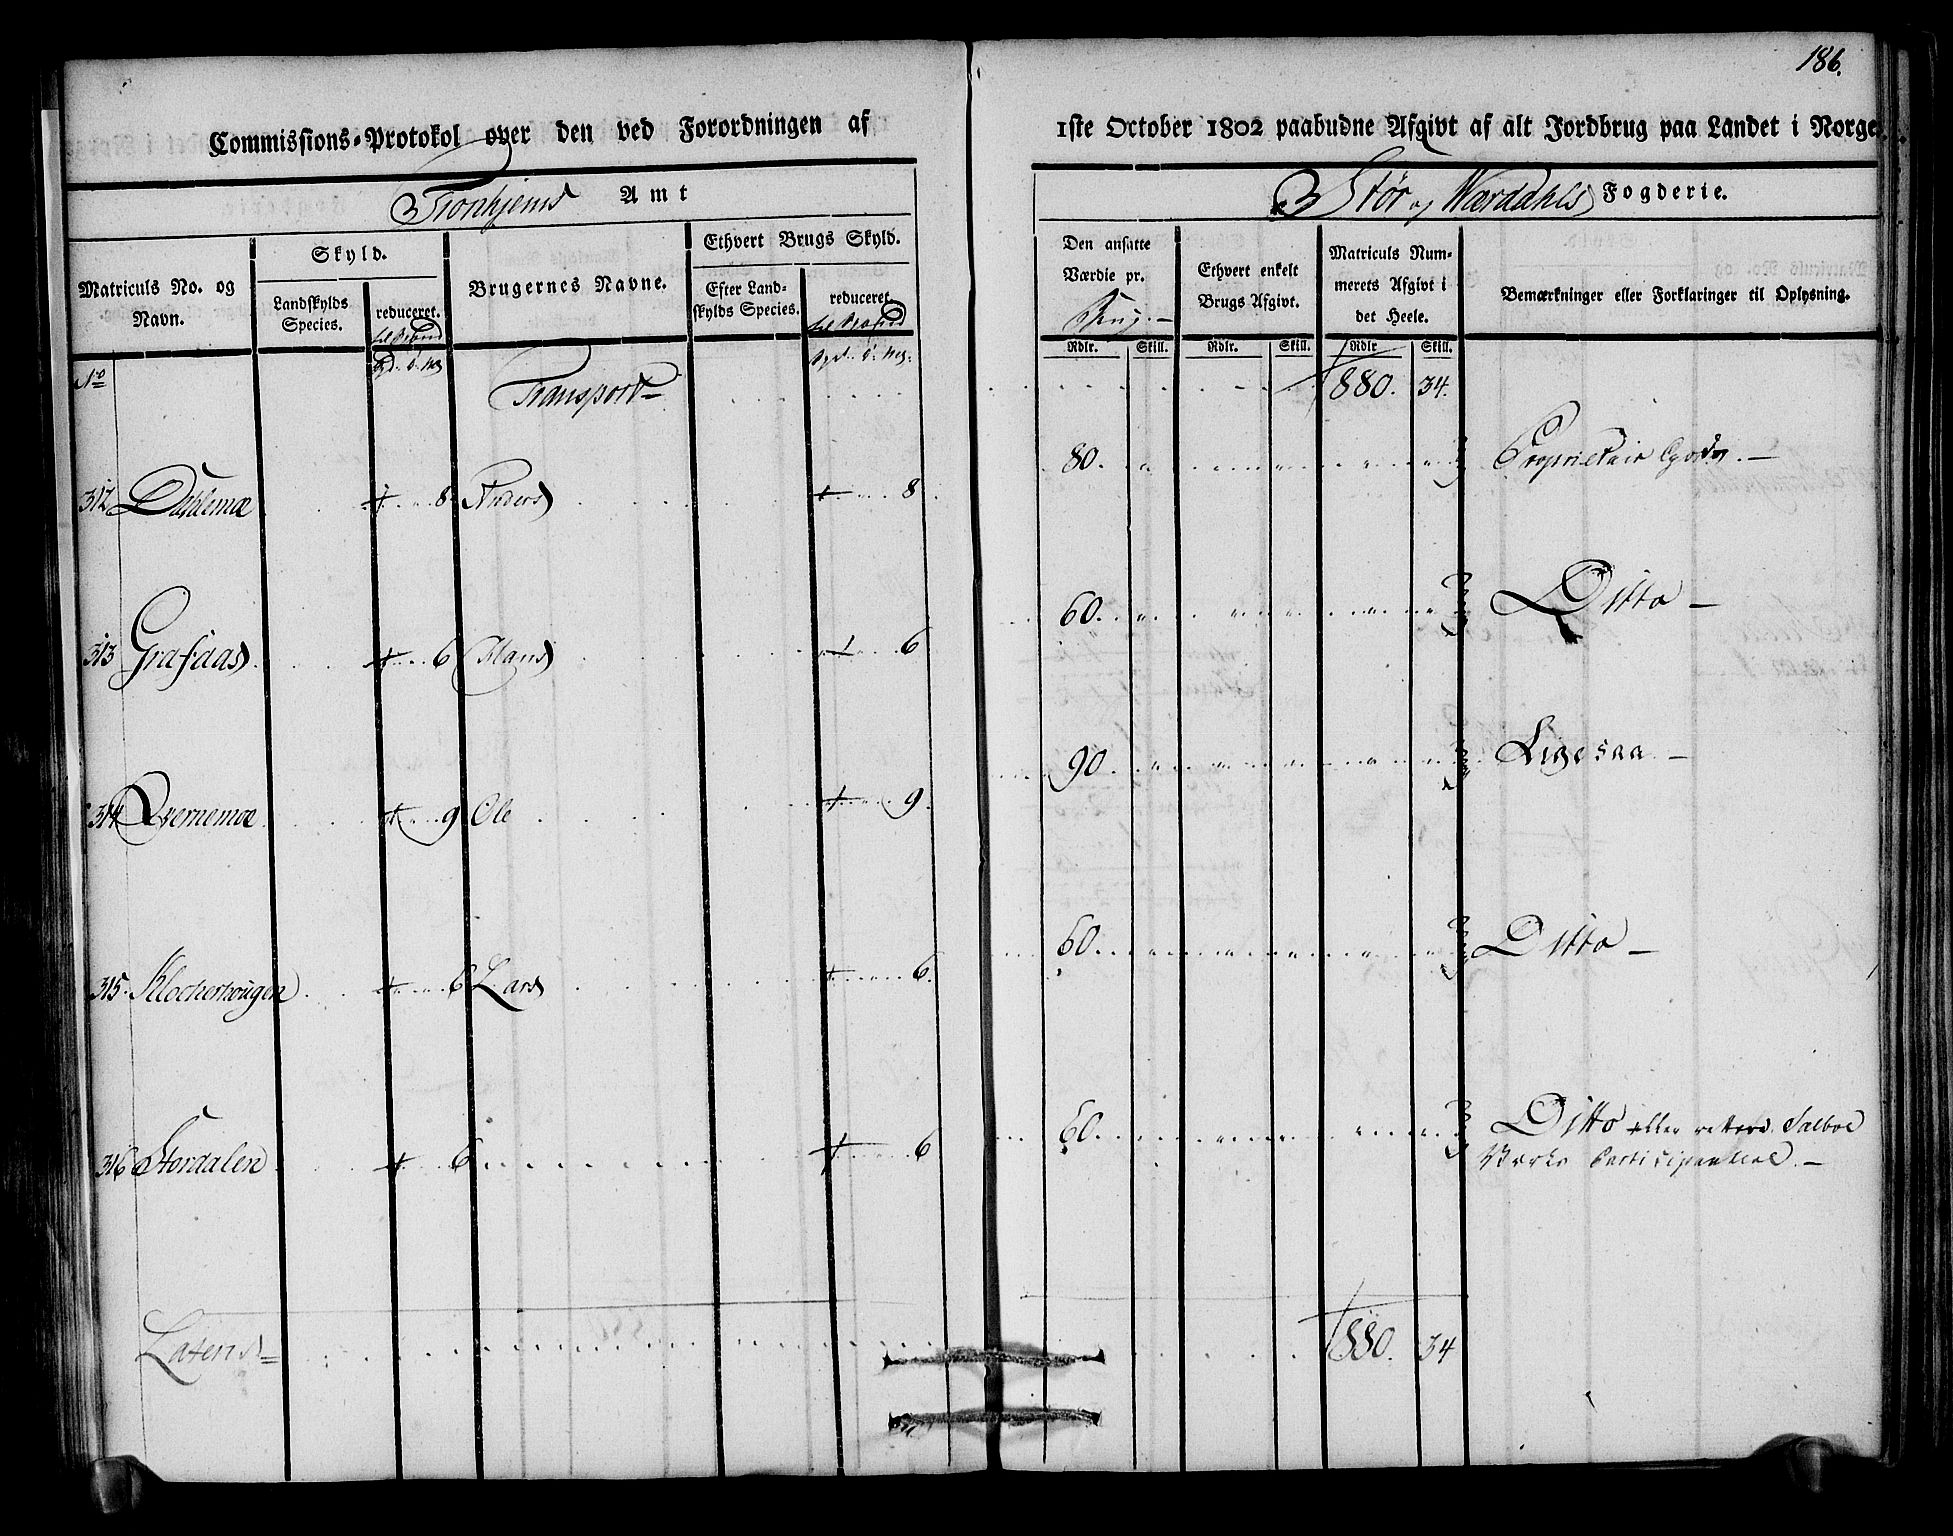 186.
Commissions-Protokol over den ved Forordningen af 1ste October 1802 paabudne Afgivt af alt Jordbrug paa Landet i Norge.
Tronhjems Amt
Stør og Værdahls Fogderie.
Matriculs No. og Navn.
Skyld.
Landskylds Species.
reduceret.
Brugernes Navne.
Ethvert Brugs Skyld.
Efter Landskylds Species.
reduceret.
Den ansatte Værdie pr. Brug.—
Ethvert enkelt Brugs Afgivt.
Matriculs Nummerets Afgivt i det Heele.
Bemærkninger eller Forklaringer til Oplysning.
Rdlr. Skill. Rdlr. Skill. Rdlr Skill.
No
Transport— 880. 34.
312 Dahlemoe 8 Anders 8 80. Proprietair
313 Grafaas 6 Hans 6 60. Ditto—
314 Qvernemoe 9 Ole 9. 90. Ligesaa—
315. Klocherhougen 6 Lars 6. 60. Ditto—
316 Stordalen 6 6 60. Ditto eller Salboe
Værks Participantere.—
Lateris= 880. 34